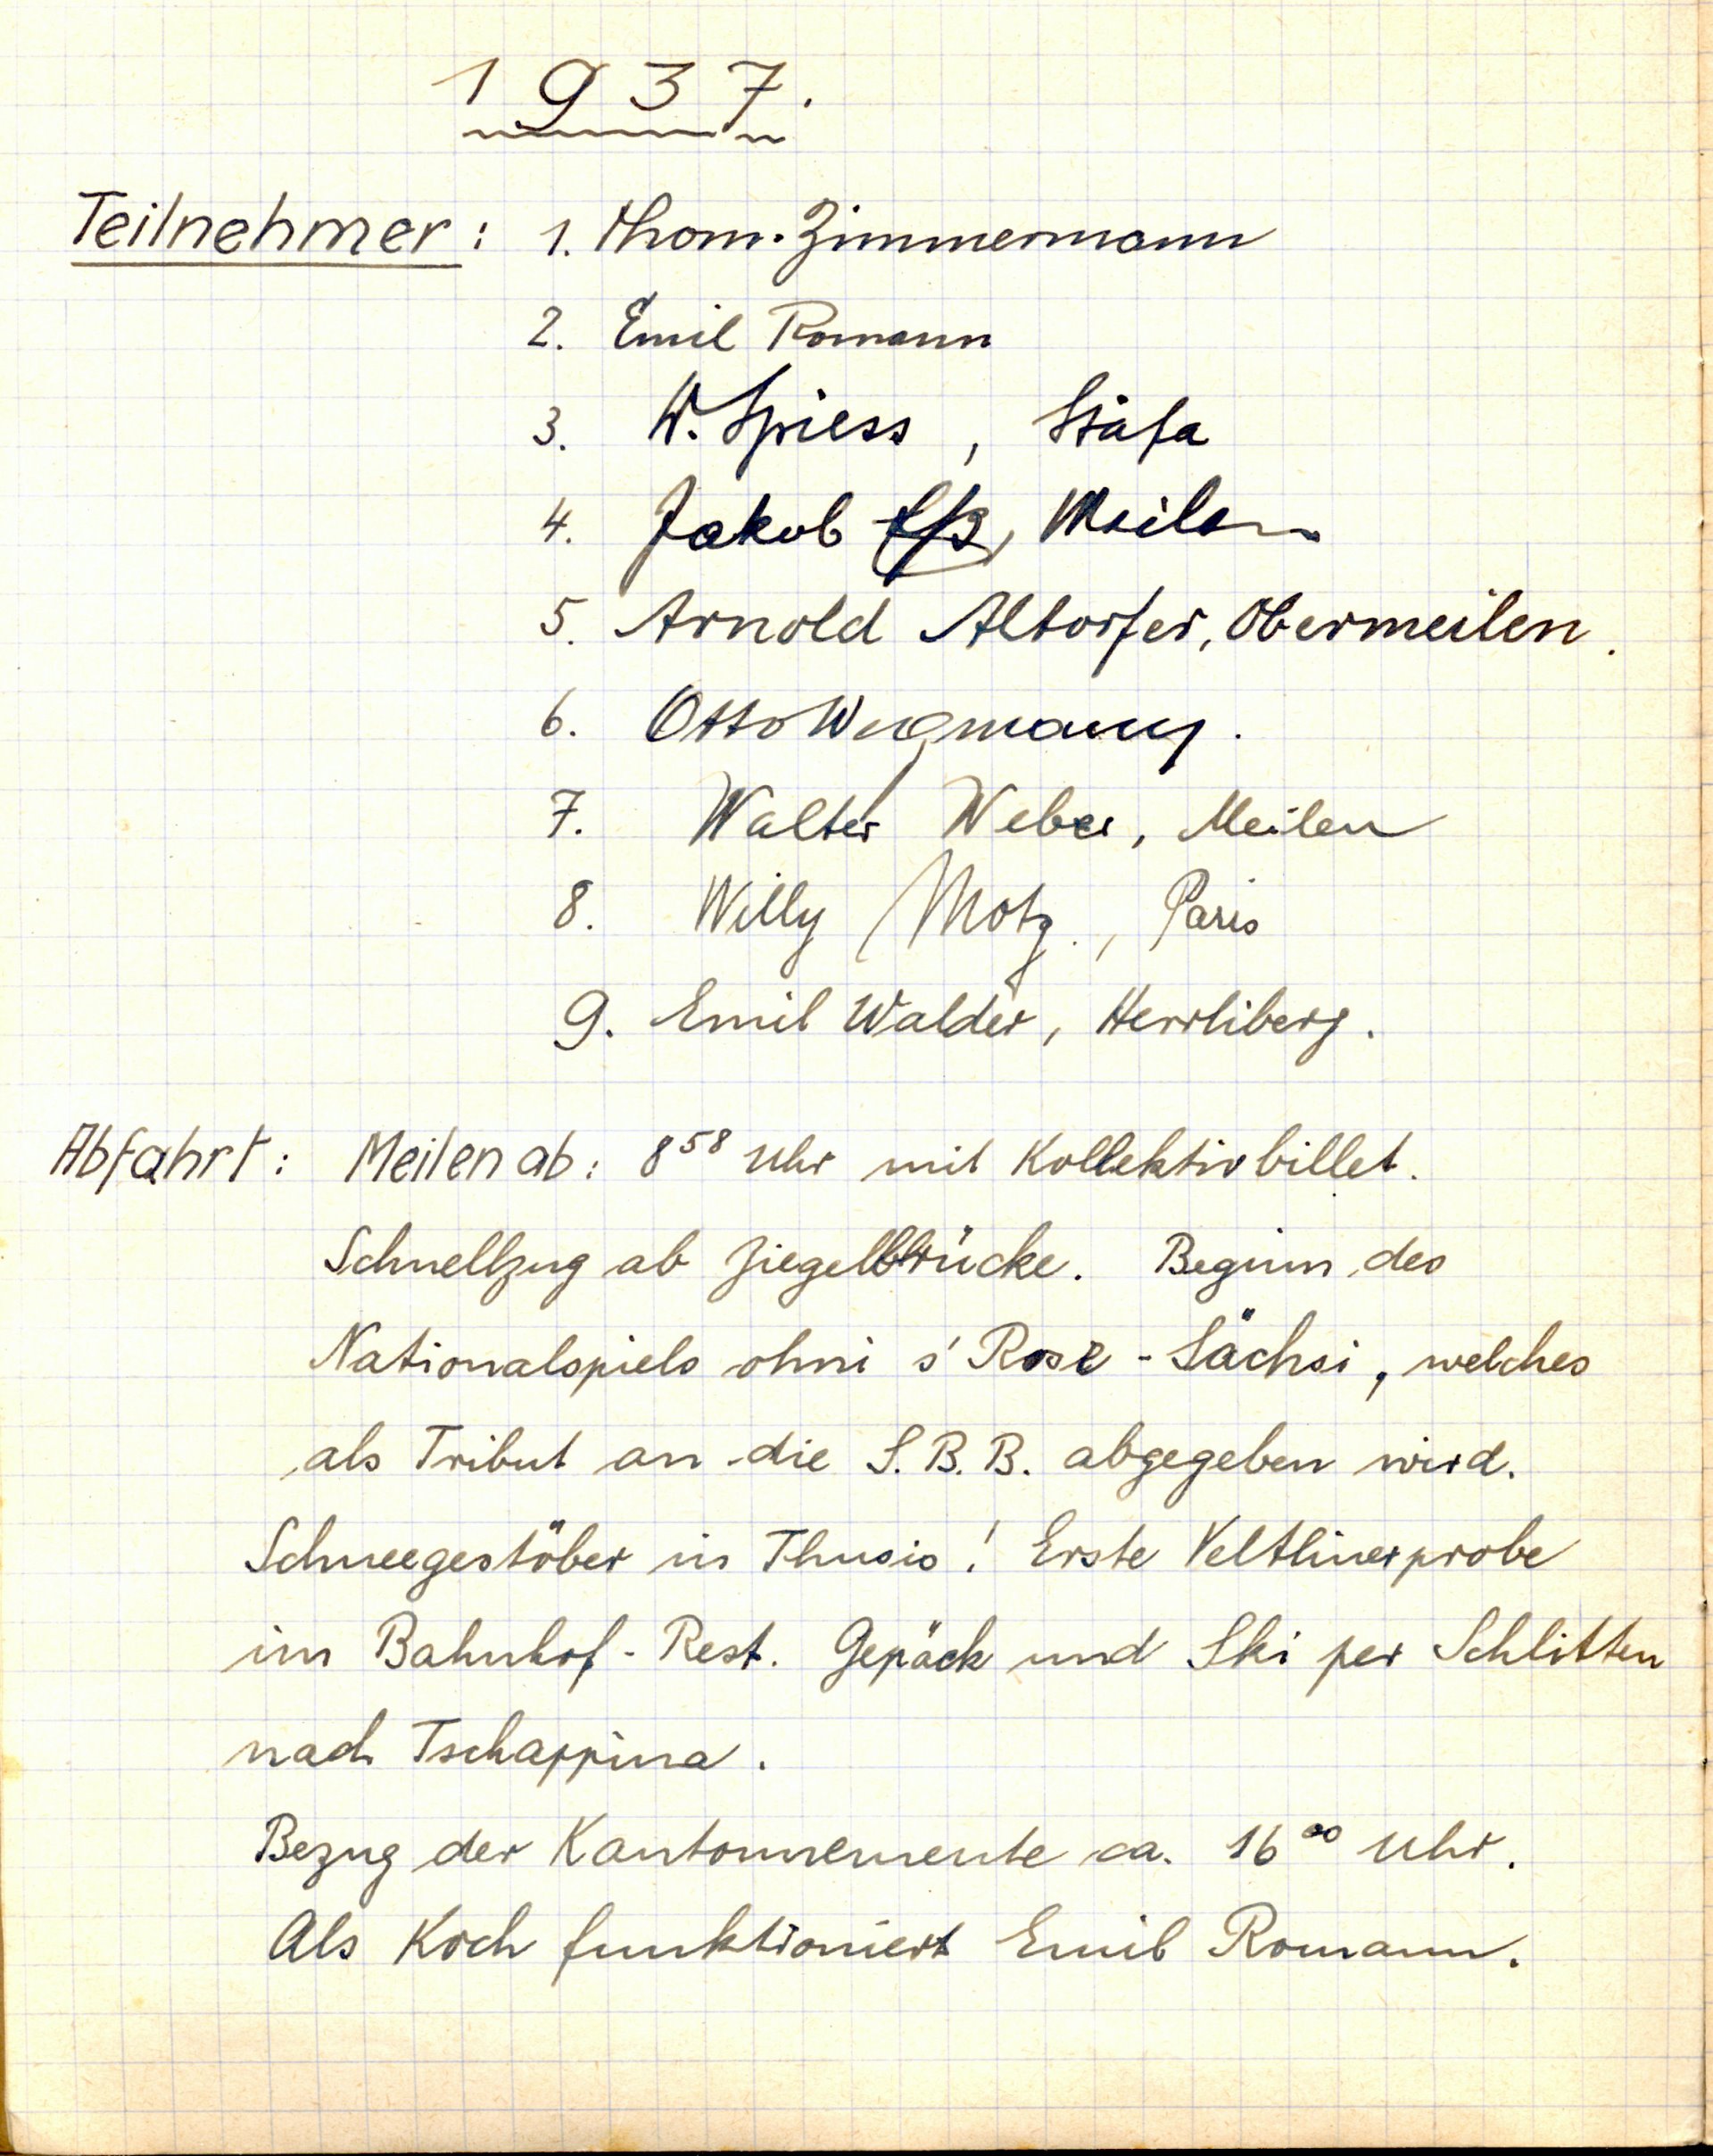 1937.
Teilnehmer: 1. Thom. Zimmermann
2. Emil Romann
3. W. Spiess, Stäfa
4. Jakob, Meilen
5. Arnold Altorfer, Obermeilen.
6. Otto Wegmann.
7. Walter Weber, Meilen
8. Willy Motz, Paris
9. Emil Walder, Herrliberg.
Abfahrt: Meilen ab: 8 58 Uhr mit Kollektivbillet.
Schnellzug ab Ziegelbrücke. Beginn des
Nationalspiels ohni s' Rose-Sächsi, welches
als Tribut an die S.B.B. abgegeben wird.
Schneegestöber in Thusis! Erste Veltlinerprobe
im Bahnhof-Rest. Gepäck und Ski per Schlitten
nach Tschappina.
Bezug der Kantonnemente ca. 16 00 Uhr.
Als Koch funktioniert Emil Romann.